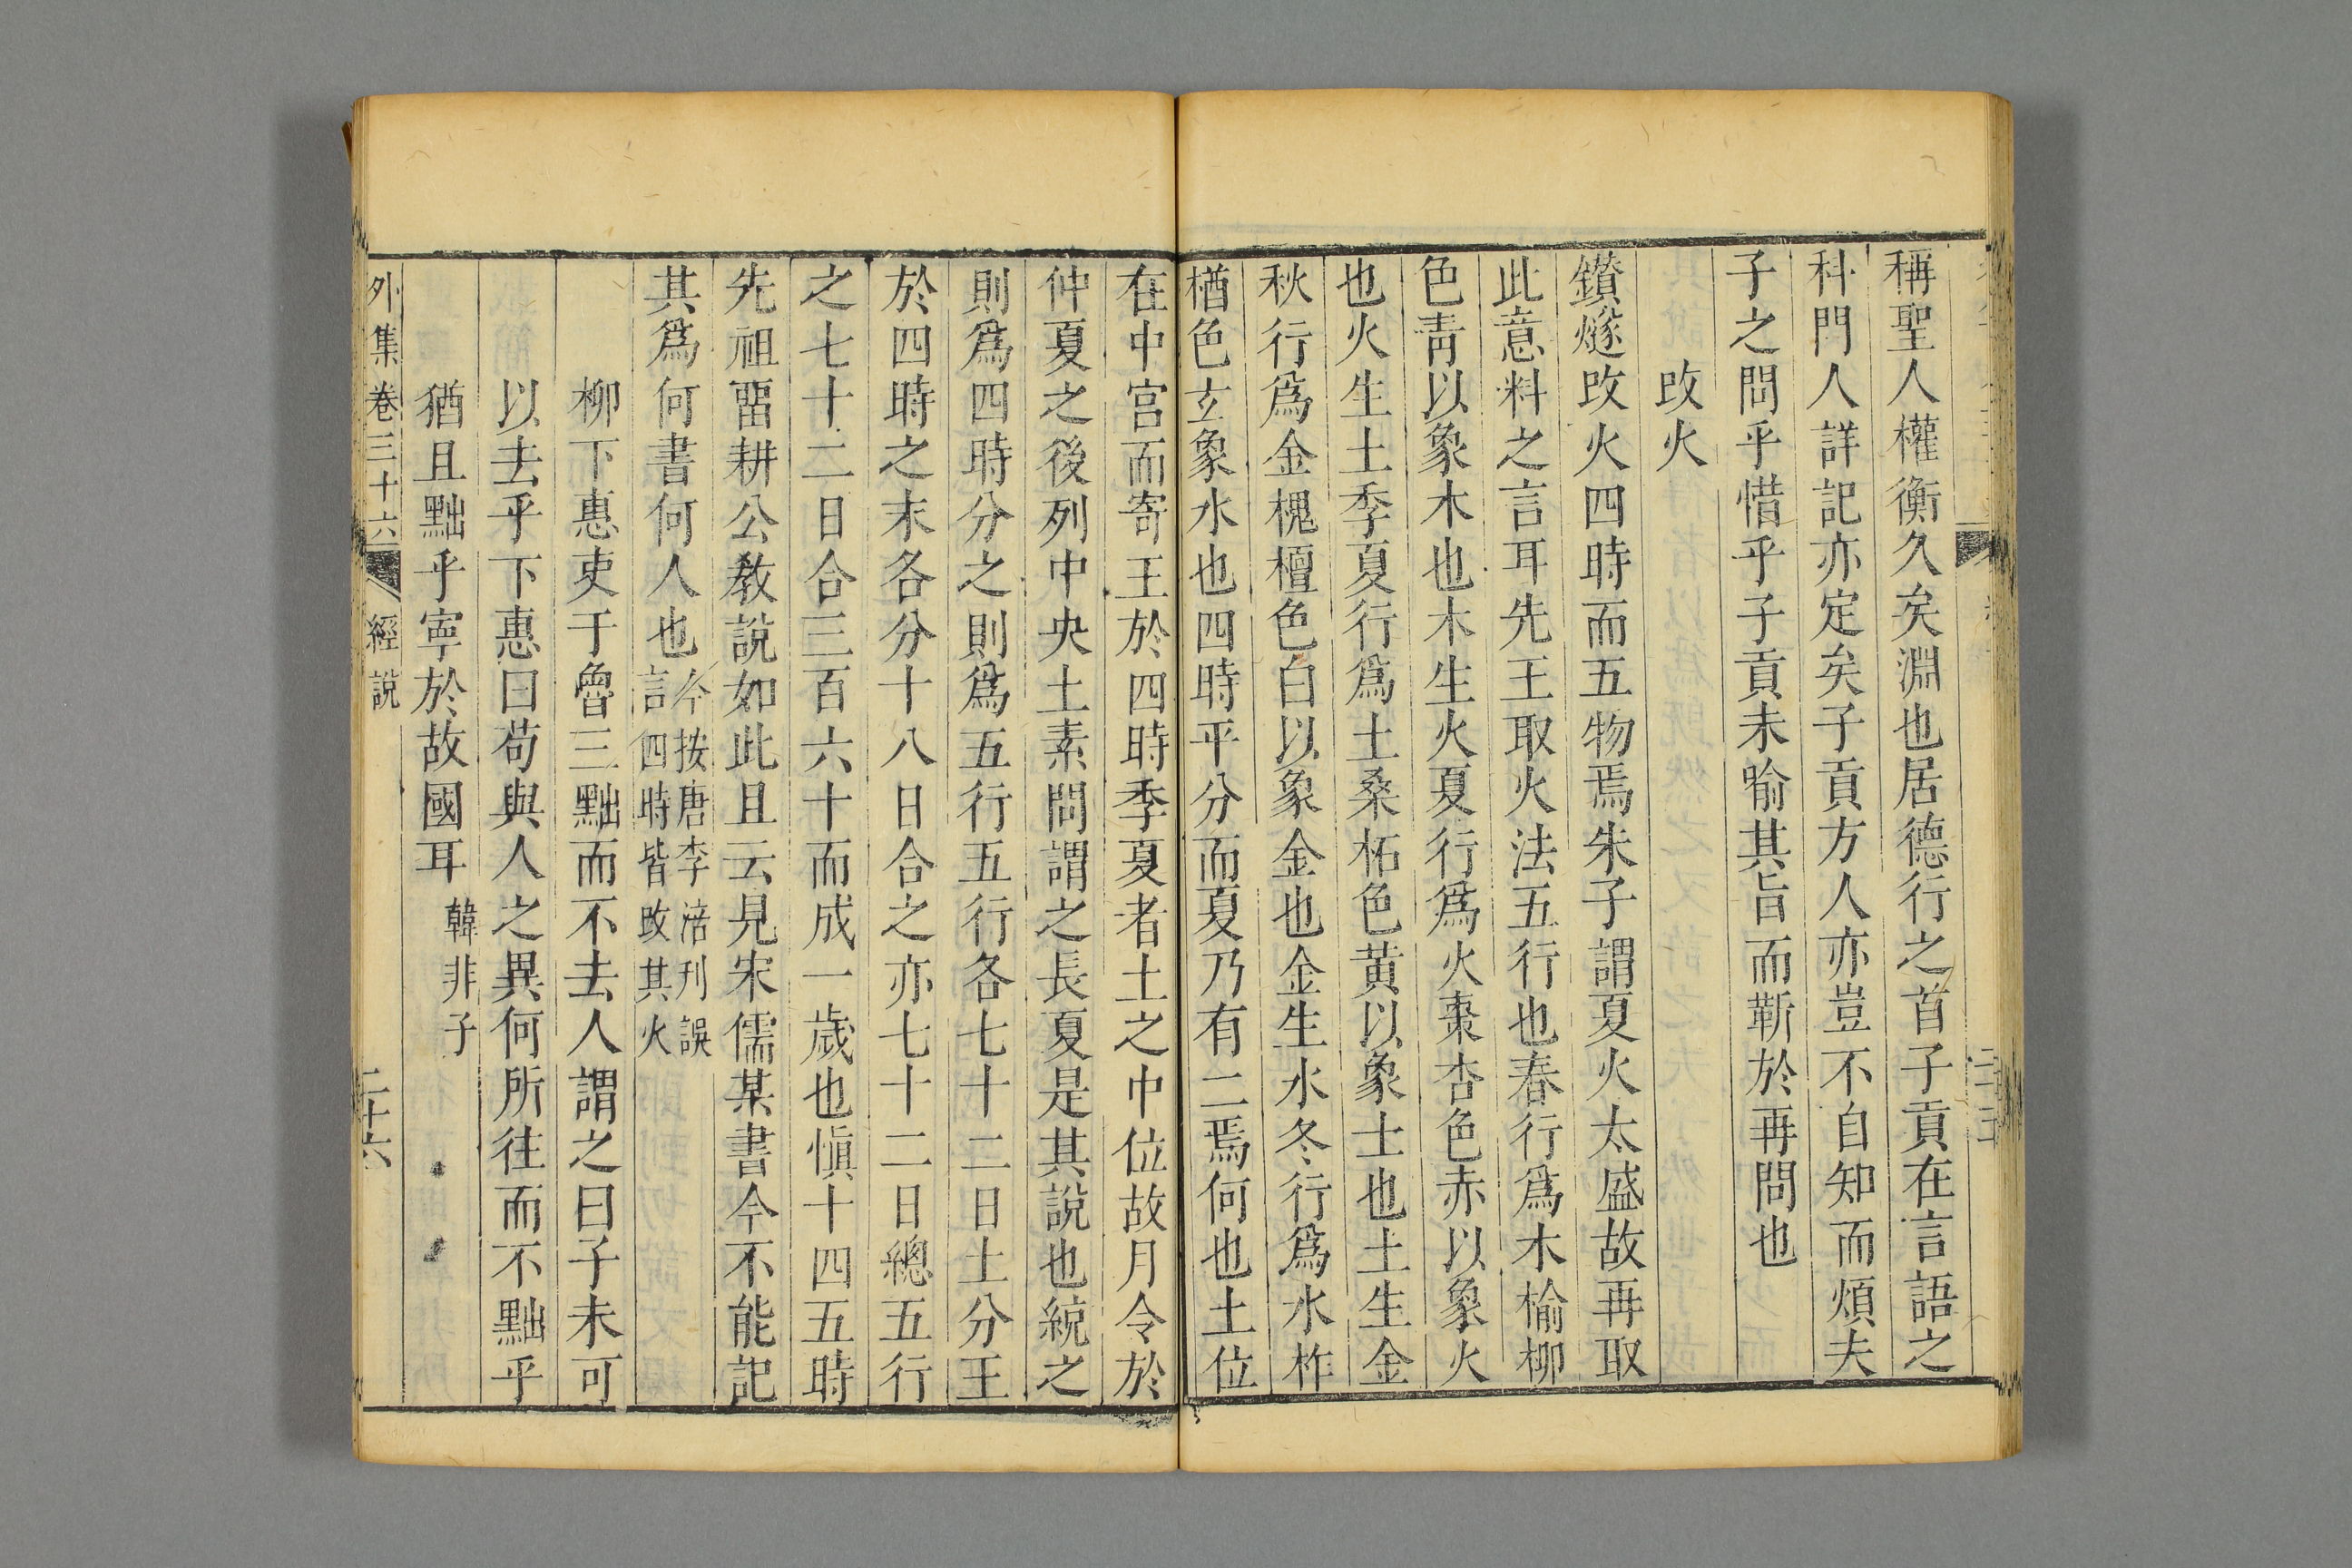 稱聖人權衡久矣淵也居德行之首子貢在言語之
科門人詳記亦定矣子貢方人亦豈不自知而煩夫
子之問乎惜乎子貢未喻其旨而靳於再問也
攺火
鑚燧攺火四時而五物焉朱子謂夏火太盛故再取
此意料之言耳先王取火法五行也春行爲木榆柳
色青以象木也木生火夏行爲火棗杏色赤以象火
也火生土季夏行爲土桑柘色黃以象土也土生金
秋行爲金槐檀色白以象金也金生水冬行爲水柞
楢色玄象水也四時平分而夏乃有二焉何也土位
在中宮而寄王於四時季夏者土之中位故月令於
仲夏之後列中央土素問謂之長夏是其說也統之
則爲四時分之則爲五行五行各七十二日土分王
於四時之末各分十八日合之亦七十二日總五行
之七十二日合三百六十而成一歲也愼十四五時
先祖畱耕公敎說如此且云見宋儒某書今不能記
其爲何書何人也今按唐李涪刋誤
言四時皆攺其火
柳下惠吏于魯三黜而不去人謂之曰子未可
以去乎下惠曰苟與人之異何所往而不黜乎
猶且黜乎寧於故國耳韓非子
外集卷三十六 經說 二十六